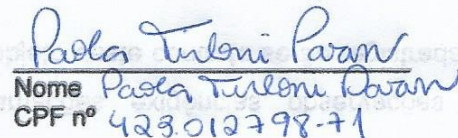 Paola Turloni Pavan
Nome Paola Turloni Pavan
CPF nº 423.012798-71